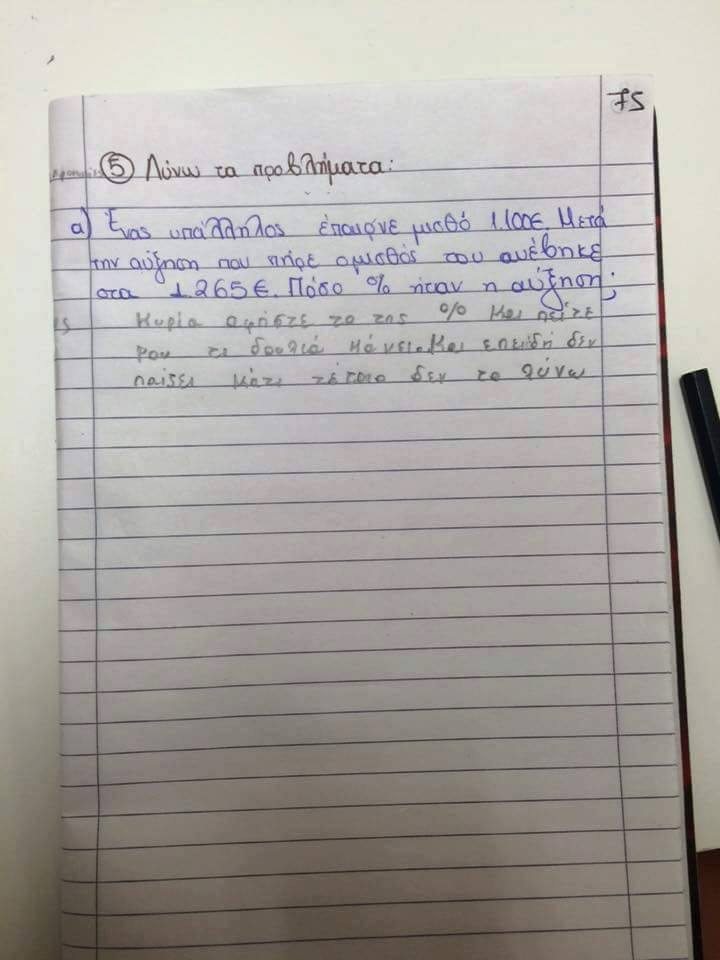 75
⑤ Λύνω τα προβλήματα:
α) Ένας υπάλληλος έπαιρνε μισθό 1.100€. Μετά
την αύξηση που πήρε ο μισθός του ανέβηκε
στα 1.265€. Πόσο % ήταν η αύξηση;
Κυρία αφήστε το της % και πείτε
μου τι δουλιά κάνει. Και επειδή δεν
παίζει κάτι τέτοιο δεν το λύνω